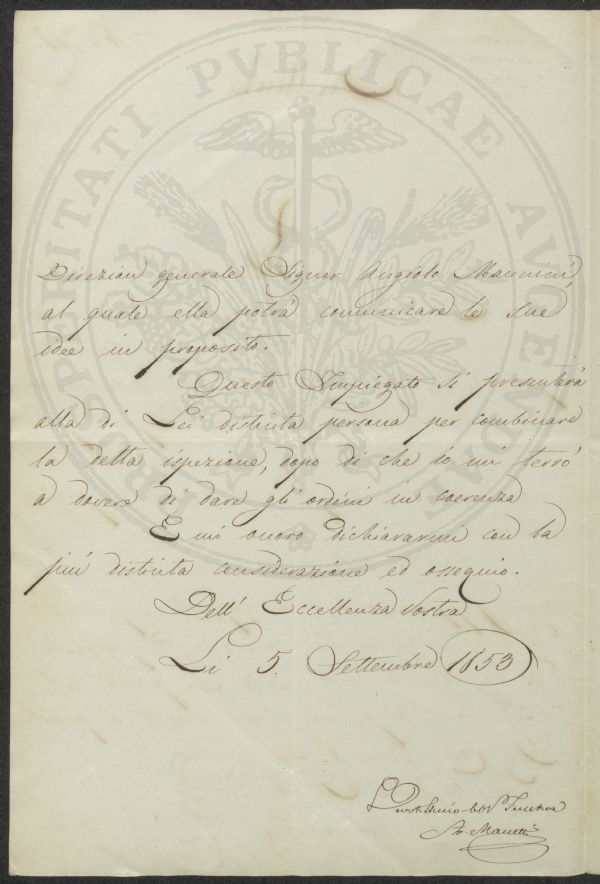 PROSPERITATI PVBLICAE AVGENDAE
Direzion generale Signor Angiolo Mannini,
al quale ella potrà comunicare le sue
idee in proposito.
Questo Impiegato si presenterà
alla di Lei distinta persona per combinare
la detta ispezione, dopo di che io mi terrò
a dovere di dare gli ordini in coerenza
E mi onoro dichiararmi con la
più distinta considerazione ed ossequio.
Dell' Eccellenza Vostra
Li 5. Settembre 1853
Manetti